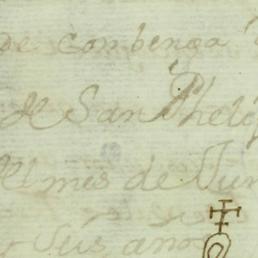 de combenga
de San Phelip
el mes de Jun
y seis años